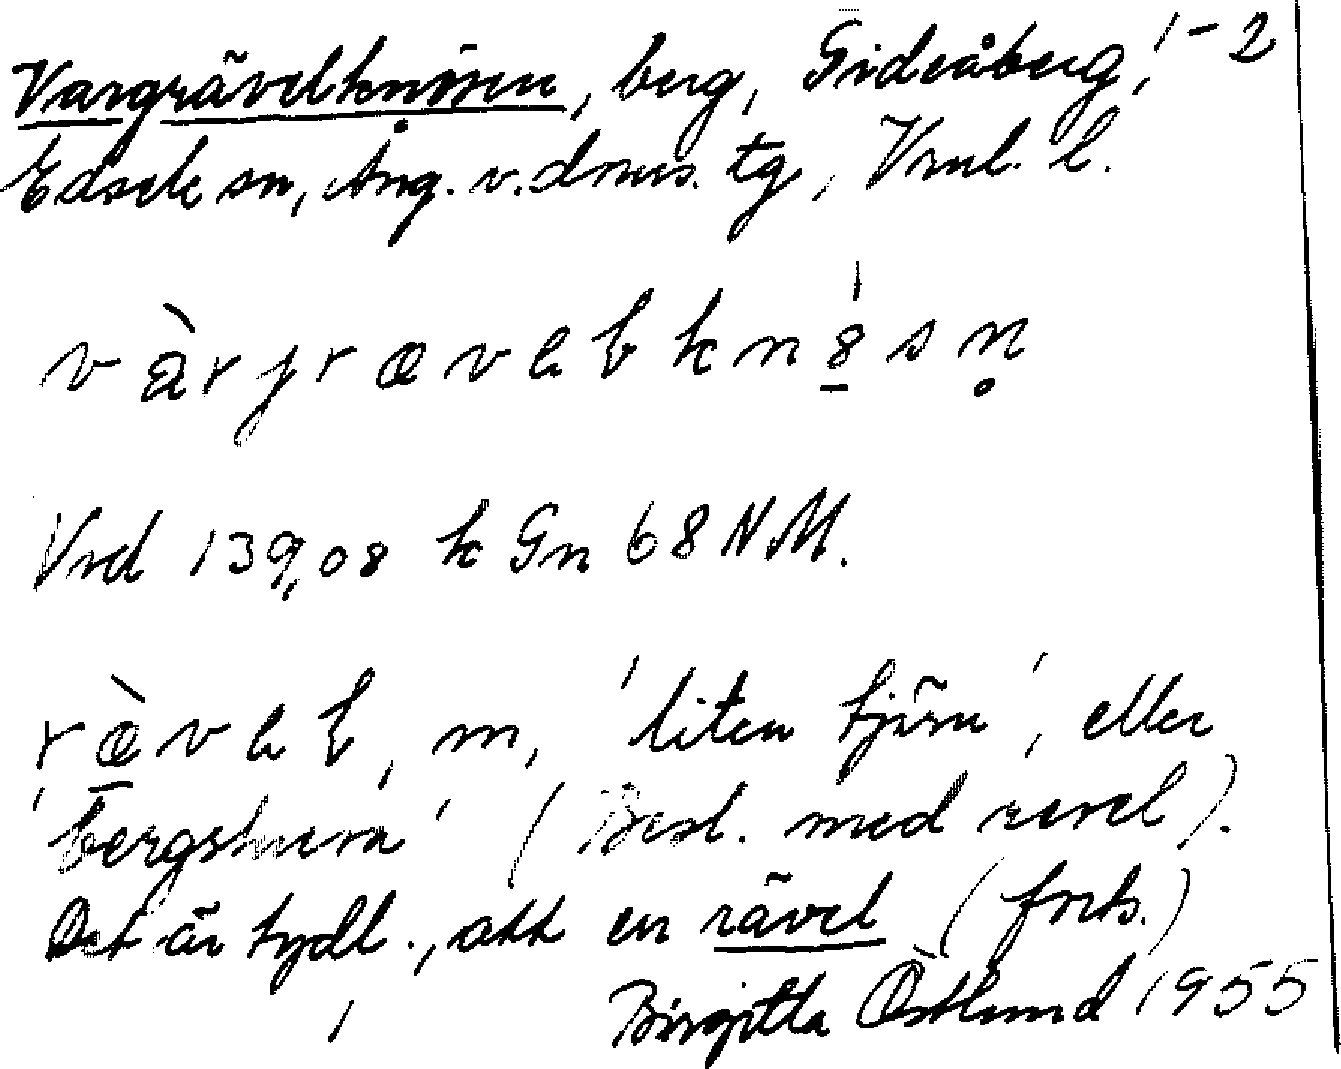 Vargrävelknösen, berg, Gideåberg, 1-2
Edsele sn, Ång. v. dnus. tg, Vrnl. l.
vàrgrævelknösn̥
Vrd 139,08 k Gn 68 NM.
rævel, m, 'liten tjärn', eller
'bergshuva' (Besl. med revel).
Det är tydl., att en rävel (forts.)
1 Birgitta Östlund 1955